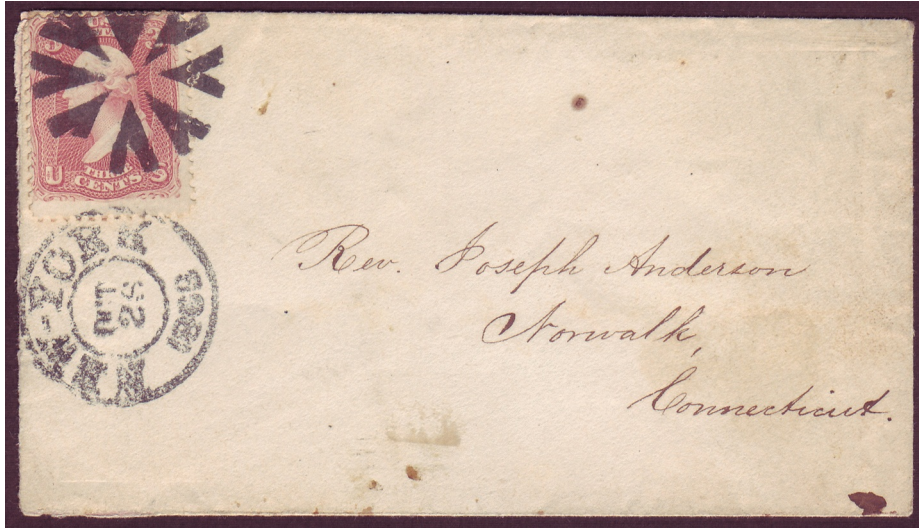 U S
THREE
CENTS
NEW-YORK
OCT
1865
Rev. Joseph Anderson
Norwalk,
Connecticut.